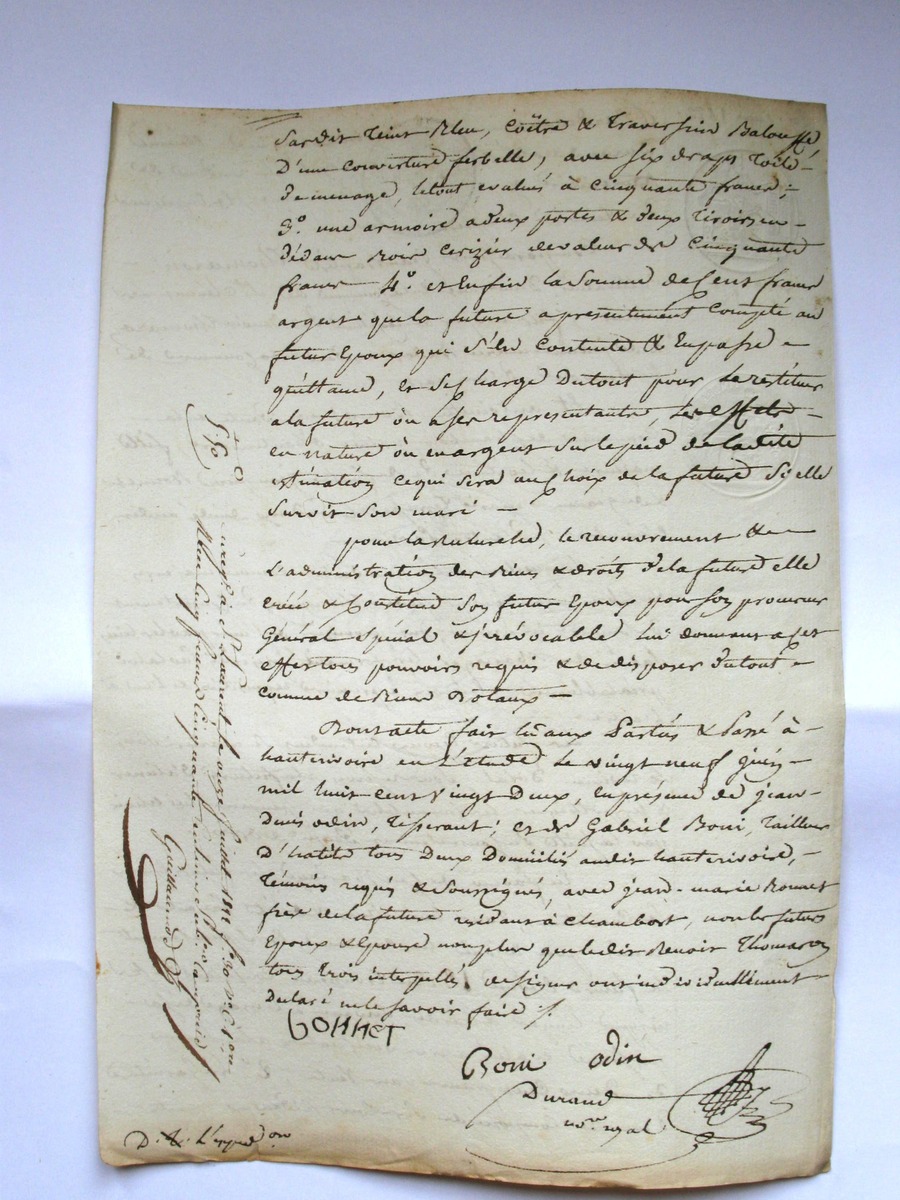 Sardit teint bleu, Coëtre & traversin Balouffé
D'une couverture serbelle, avec six draps toile
de menage, le tout evalués à Cinquante francs;
3º. une armoire a deux portes & deux tiroirs en-
dédans bois cerizier de valeur de Cinquante
francs 4º. et Enfin la Somme de Cent francs
argent que la future a presentement Compté au
futur Epoux qui S'en Contente & En passe
quittance, et se Charge Du tout pour le restituer
a la future où a ses representants, les effets
en nature où en argent Sur le pied de la dite
estimation ce qui sera au Choix de la future Si elle
Survit Son mari —
pour la recherche, le recouvrement &
L'administration des Biens & droits de la future elle
crée & Constitue Son futur Epoux pour Son procureur
Général Spécial & irrévocable lui donnant a cet
effet tous pouvoirs requis & de disposer du tout
comme de Biens Dotaux —
Dont acte fait lu aux Parties & Passé à
hauterivoire en L'étude le vingt neuf juin
mil huit cent Vingt Deux, en présence de jean-
Denis odin, Tisserant; et de Gabriel Boni, Tailleur
D'habits tous Deux Domiciliés audit hauterivoire,
Témoins requis & Soussignés, avec jean-marie Bonnet
frère de la future residant à Chambost, non les futurs
Epoux & Epouse non plus que ledit Benoit Thomas
tous trois interpellés de signer ont individuellement
Declaré ne le Savoir faire ./.
BONNET
Boni odin
Durand
no.re royal
D. & L'exped.on
5f 50c
à St Laurent le onze juillet 1822 fo 30
Reçu cinq francs Cinquante centimes
Guillaud